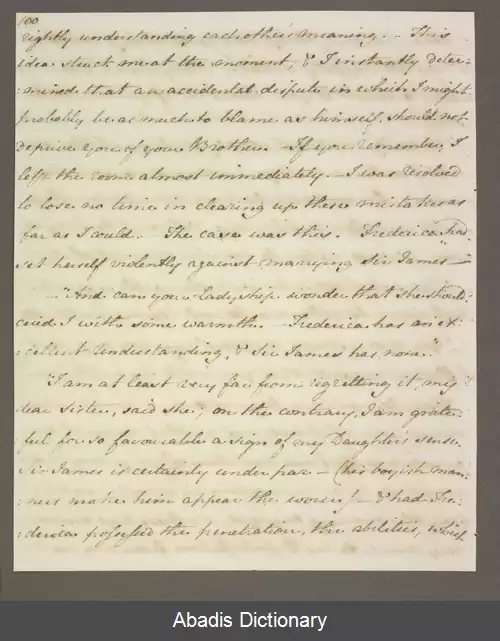 100
rightly understanding each other's meaning. — This
idea struck me at the moment, & I instantly deter:
:mined that an accidental dispute in which I might
probably be as much to blame as himself, should not
deprive you of your Brother. If you remember, I
left the room almost immediately. — I was resolved
to lose no time in clearing up these mistakes as
far as I could. — The case was this. Frederica had
set herself violently against marrying Sir James —"
— "And can your Ladyship wonder that she should?
cried I with some warmth. — Frederica has an ex:
:cellent Understanding, & Sir James has none."
"I am at least very far from regretting it, my
dear Sister, said she; on the contrary, I am grate:
:ful for so favourable a sign of my Daughter's sense.
Sir James is certainly under par — (his boyish man:
:ners make him appear the worse) — & had Fre:
:derica possessed the penetration, the abilities, which
Abadis Dictionary